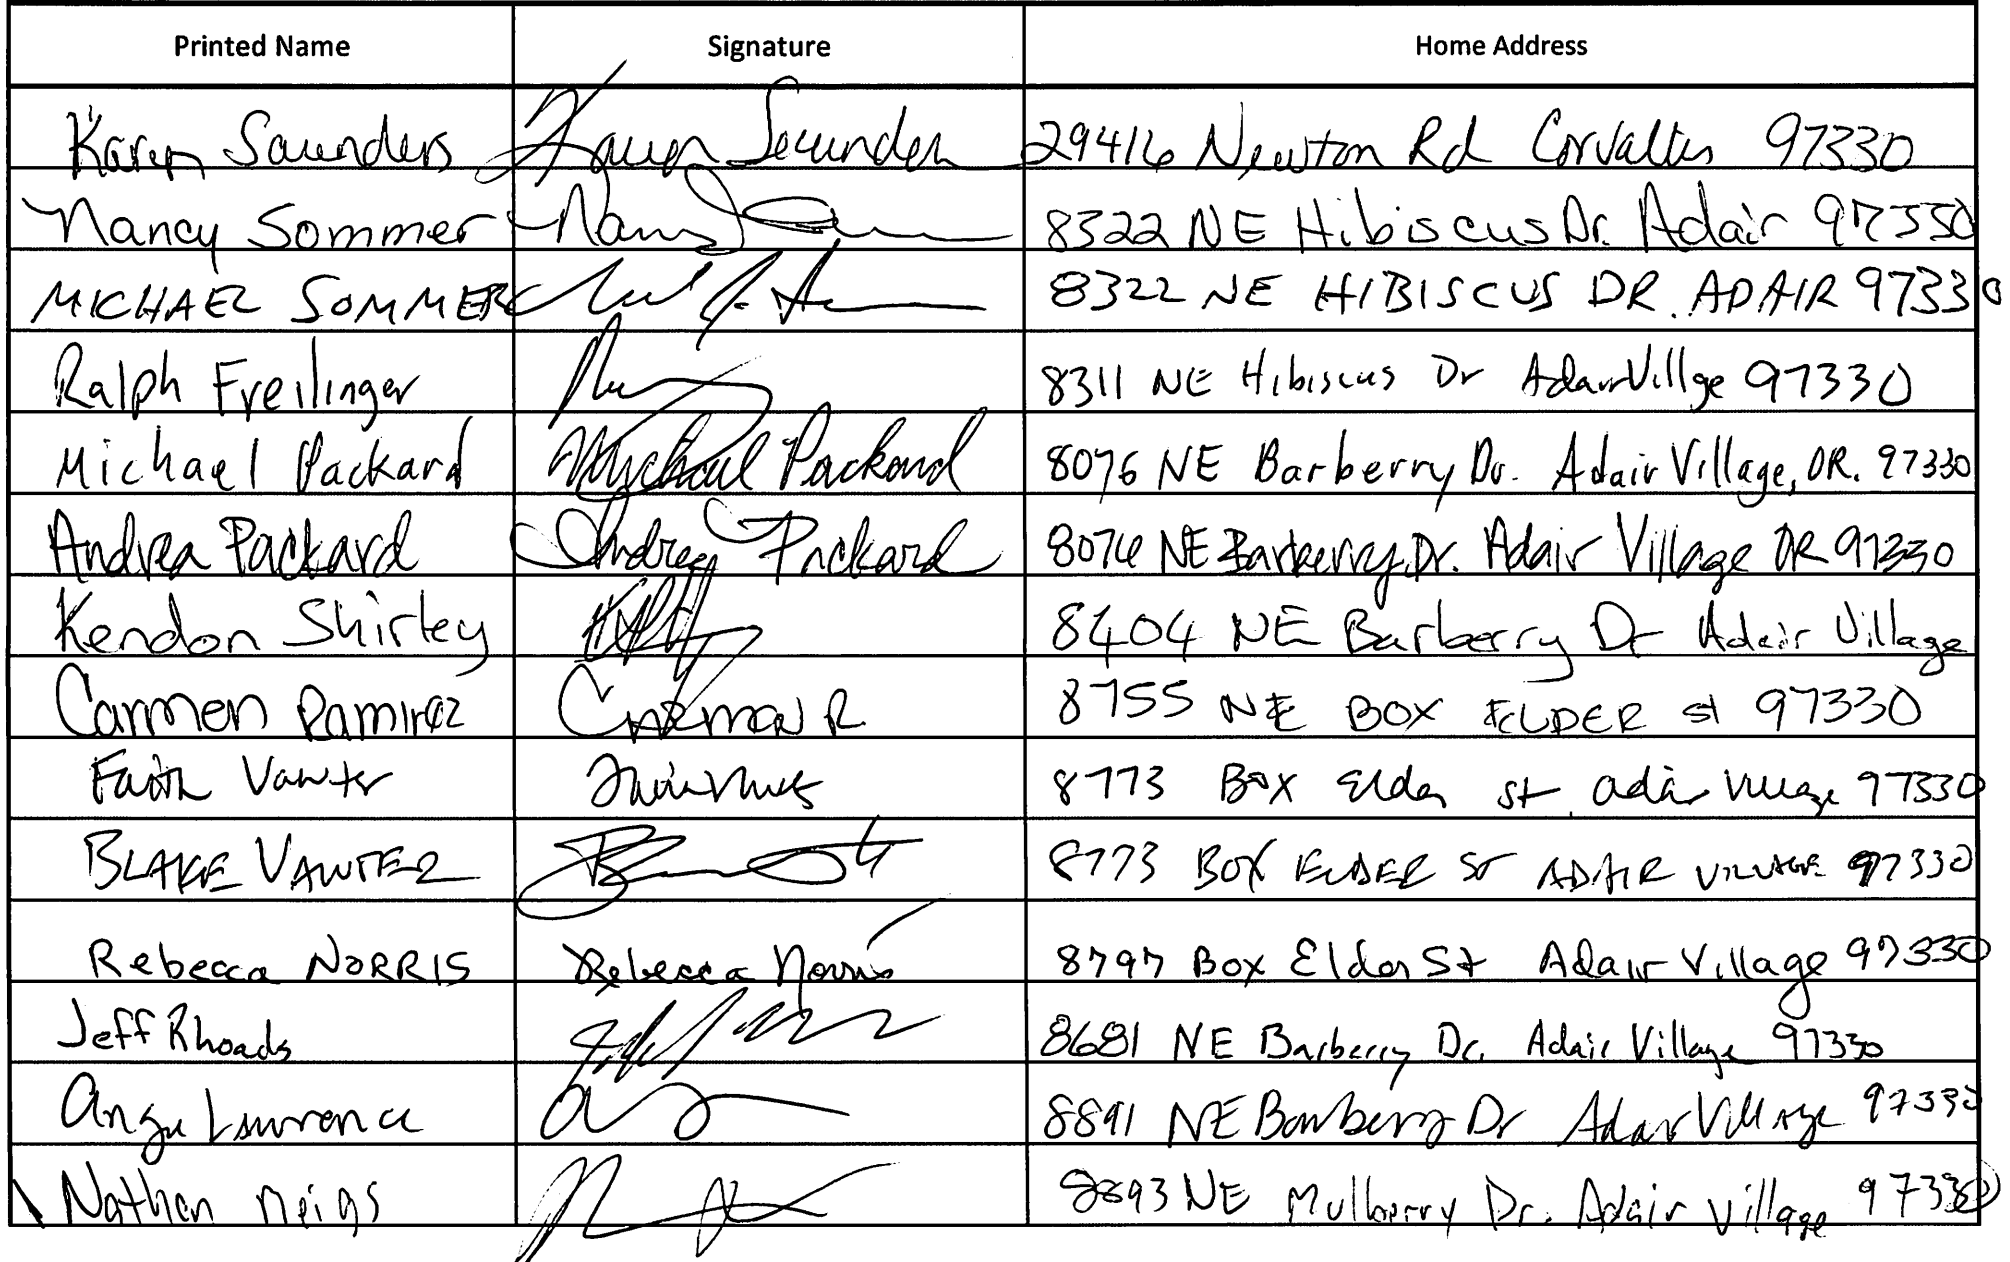 Printed Name Signature Home Address
Karen Saunders Karen Saunders 29416 Newton Rd Corvallis 97330
Nancy Sommer 8322 NE Hibiscus Dr. Adair 97330
MICHAEL SOMMER 8322 NE HIBISCUS DR. ADAIR 97330
Ralph Freilinger 8311 NE Hibiscus Dr Adair Villge 97330
Michael Packard Michael Packard 8076 NE Barberry Dr. Adair Village, OR. 97330
Andrea Packard Andrea Packard 8076 NE Barberry Dr. Adair Village OR 97330
Kendon Shirley 8404 NE Barberry Dr Adair Village
Carmen Ramirez CARMEN R 8755 NE BOX ELDER st 97330
Faith Vawter 8773 Box Elder st adair village 97330
BLAKE VAWTER 8773 BOX ELDER ST ADAIR VILLAGE 97330
Rebecca NORRIS Rebecca Norris 8797 Box Elder St Adair Village 97330
Jeff Rhoads 8681 NE Barberry Dr. Adair Village 97330
Angie Lawrence 8891 NE Barberry Dr Adair Village 97330
Nathan Meigs 8893 NE Mulberry Dr. Adair Village 97330